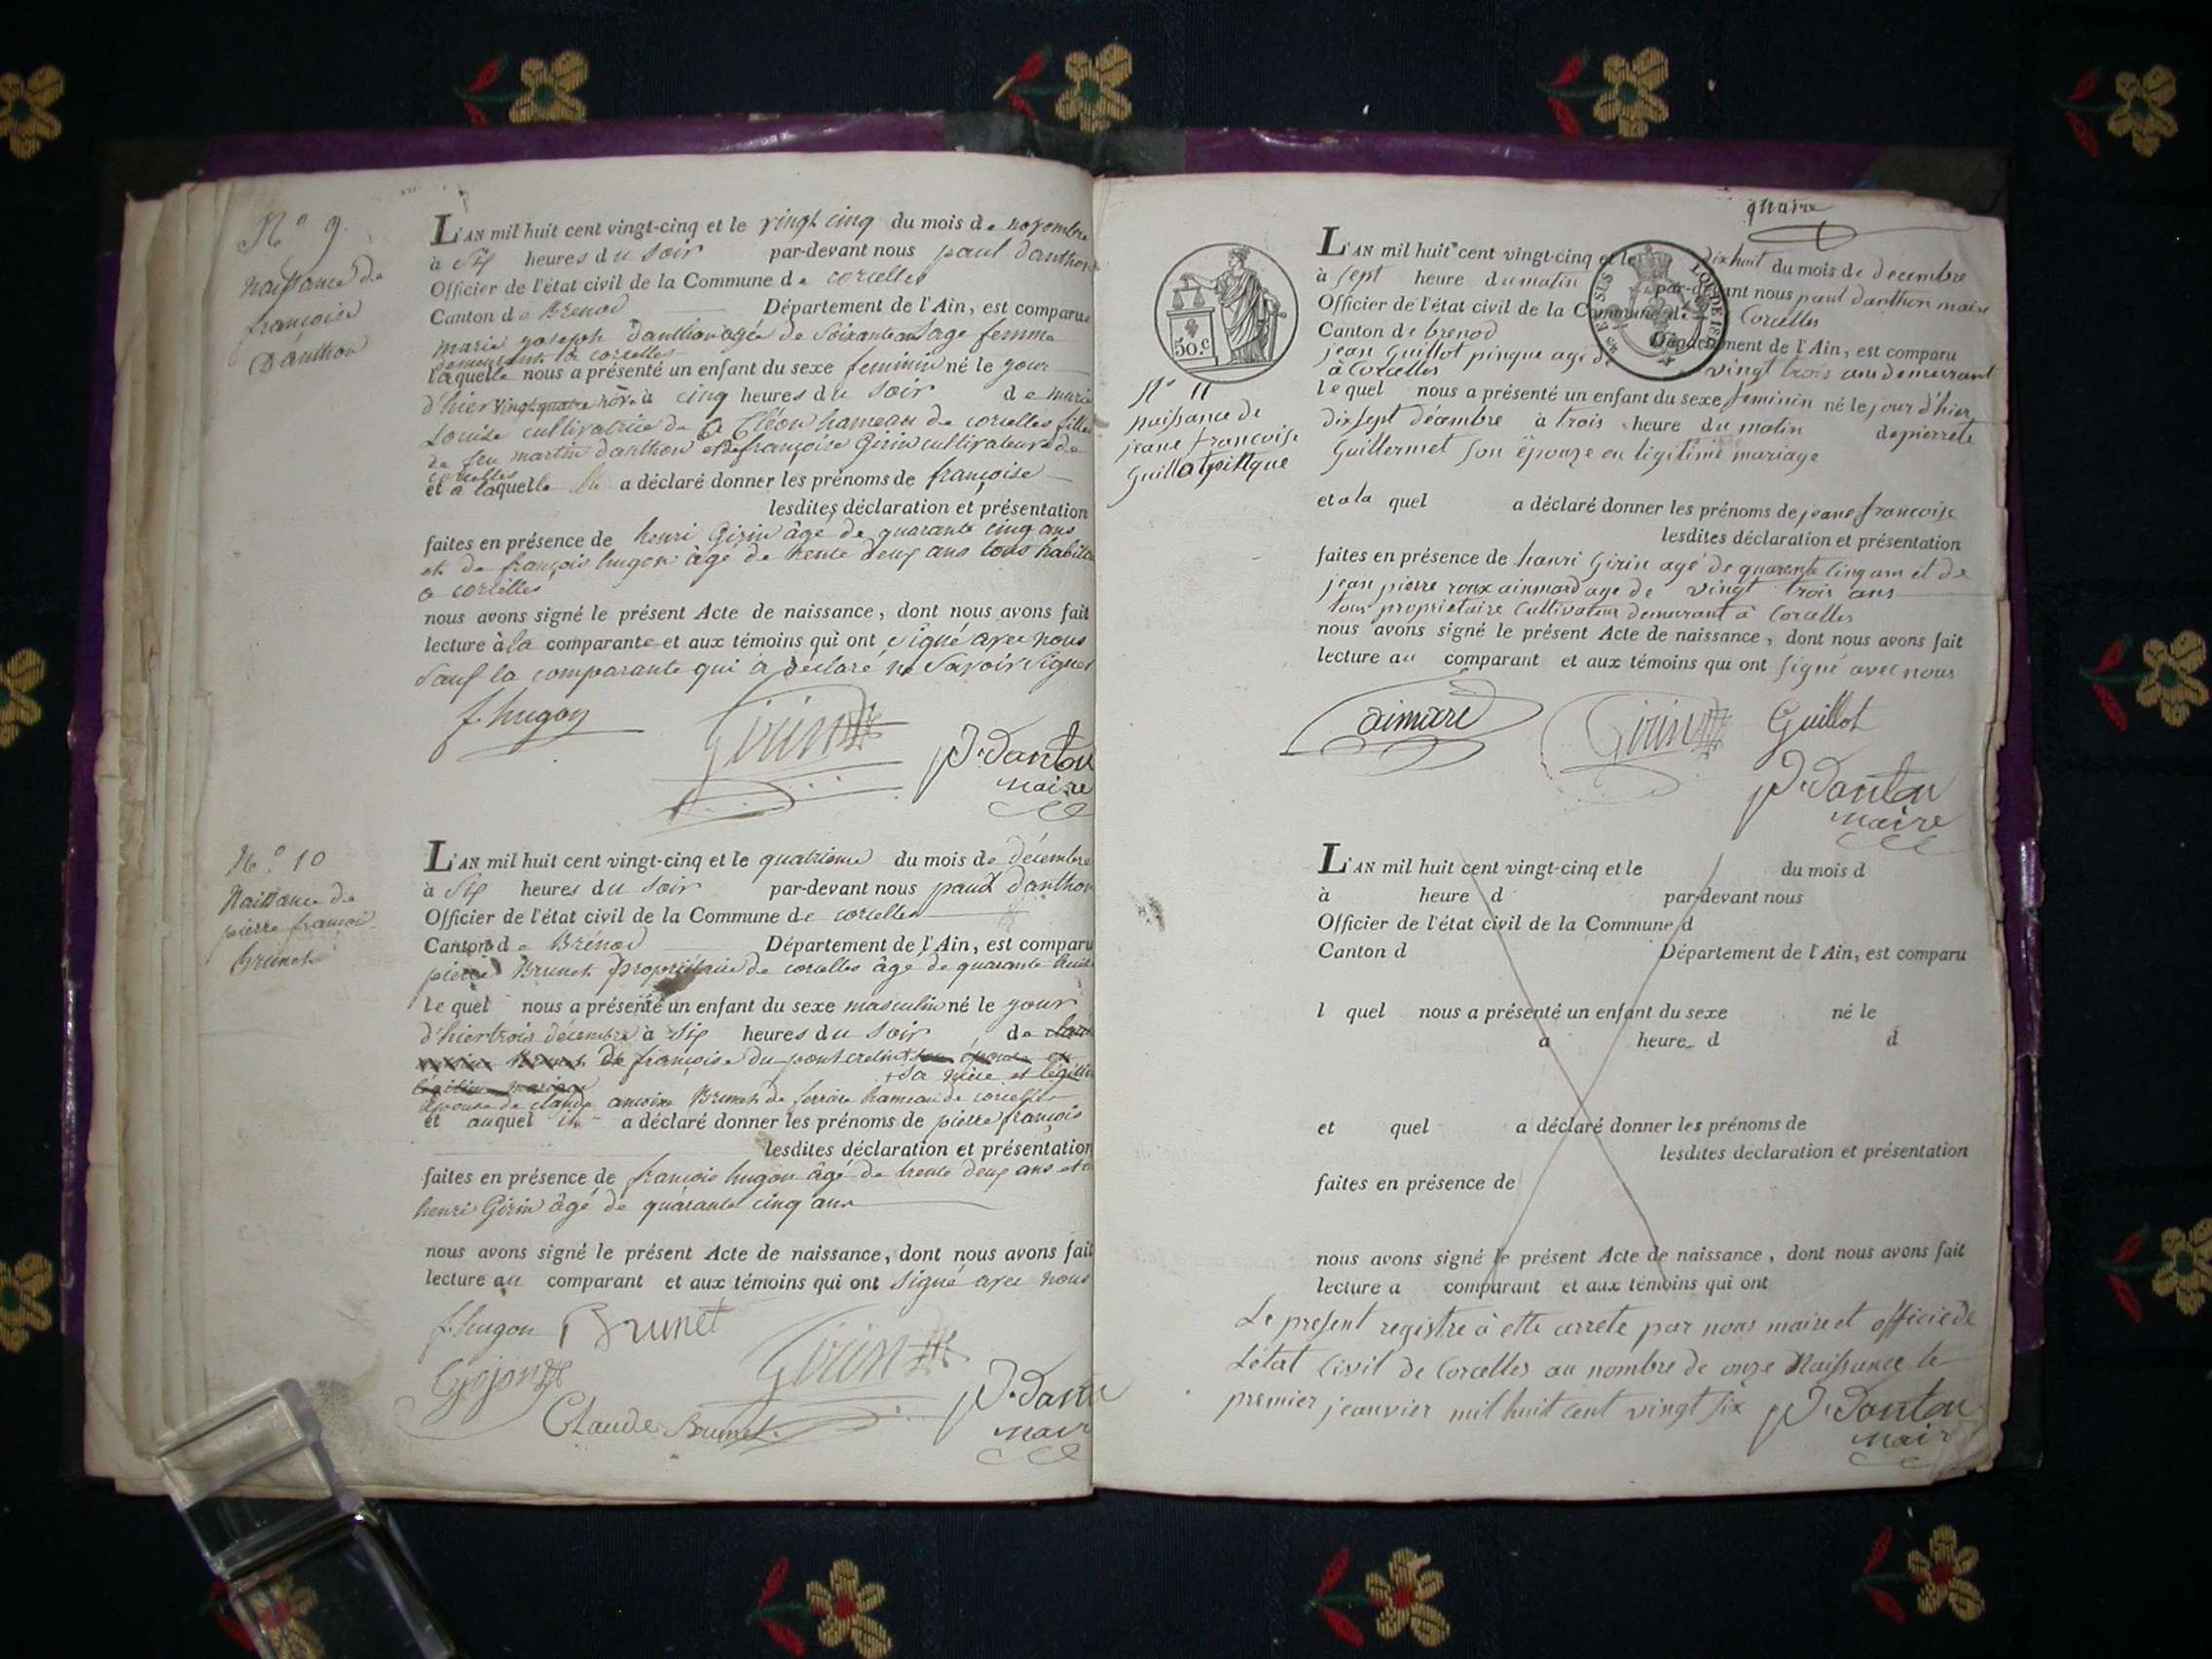 N.o 9.
naissance de
françoise
Danthon
L'AN mil huit cent vingt-cinq et le vingt cinq du mois de novembre
à six heures du soir par-devant nous paul danthon
Officier de l'état civil de la Commune de corcelles
Canton de Brenod Département de l'Ain, est comparue
marie joseph danthon agée de Soixante ans sage femme
demeurante à corcelles
laquelle nous a présenté un enfant du sexe feminin né le jour
d'hier vingt quatre nov.e à cinq heures du soir de marie
Louise cultivatrice de Cléon hameau de corcelles fille
de feu martin danthon et de françoise Girin cultivateurs de
corcelles
et a laquelle a déclaré donner les prénoms de françoise
lesdites déclaration et présentation
faites en présence de henri Girin âgé de quarante cinq ans
et de françois hugon âgé de trente deux ans tous habitans
a corcelles
nous avons signé le présent Acte de naissance, dont nous avons fait
lecture à la comparante et aux témoins qui ont signé avec nous
Sauf la comparante qui a déclaré ne Savoir Signer
f. hugon
Girin
P. Danton
maire
N.o 10
Naissance de
pierre françois
Brunet
L'AN mil huit cent vingt-cinq et le quatrieme du mois de décembre
à Six heures du soir par-devant nous paul danthon
Officier de l'état civil de la Commune de corcelles
Canton de Brénod Département de l'Ain, est comparu
pierre Brunet propriétaire de corcelles âgé de quarante huit
le quel nous a présenté un enfant du sexe masculin né le jour
d'hier trois décembre à six heures du soir de
de françoise du pont son épouse en
sa mère et légitime
légitime mariage
épouse de claude antoine Brunet de ferrière hameau de corcelles
et auquel il a déclaré donner les prénoms de pierre françois
lesdites déclaration et présentation
faites en présence de françois hugon âgé de trente deux ans et
henri Girin âgé de quarante cinq ans
nous avons signé le présent Acte de naissance, dont nous avons fait
lecture au comparant et aux témoins qui ont signé avec nous
f. hugon Brunet
Girin
Gojon
Claude Brunet
P. Danton
maire
quatre
50.c
LOI DE 18
N.o 11
naissance de
jeane francoise
Guillot pinque
L'AN mil huit cent vingt-cinq et le dix huit du mois de decembre
à sept heure du matin par-devant nous paul danthon maire
Officier de l'état civil de la Commune de Corcelles
Canton de brenod Département de l'Ain, est comparu
jean Guillot pinque agé de vingt trois ans demeurant
à Corcelles
le quel nous a présenté un enfant du sexe feminin né le jour d'hier
dix sept décembre à trois heure du matin de pierrete
Guillermet son épouze en légitime mariage
et a la quel a déclaré donner les prénoms de jeane francoise
lesdites déclaration et présentation
faites en présence de hanri Girin agé de quarente cinq ans et de
jean pierre roux ainmard age de vingt trois ans
tous proprietaire Cultivateur demeurant à Corcelles
nous avons signé le présent Acte de naissance, dont nous avons fait
lecture au comparant et aux témoins qui ont signé avec nous
aimard
Girin
Guillot
P. Danton
maire
L'AN mil huit cent vingt-cinq et le du mois d
à heure d par-devant nous
Officier de l'état civil de la Commune d
Canton d Département de l'Ain, est comparu
l quel nous a présenté un enfant du sexe né le
à heure d d
et quel a déclaré donner les prénoms de
lesdites déclaration et présentation
faites en présence de
nous avons signé le présent Acte de naissance, dont nous avons fait
lecture a comparant et aux témoins qui ont
Le present registre à etté arreté par nous maire et officié de
L'état Civil de Corcelles au nombre de onze Naissance le
premier jeanvier mil huit cent vingt six P. Danton
maire